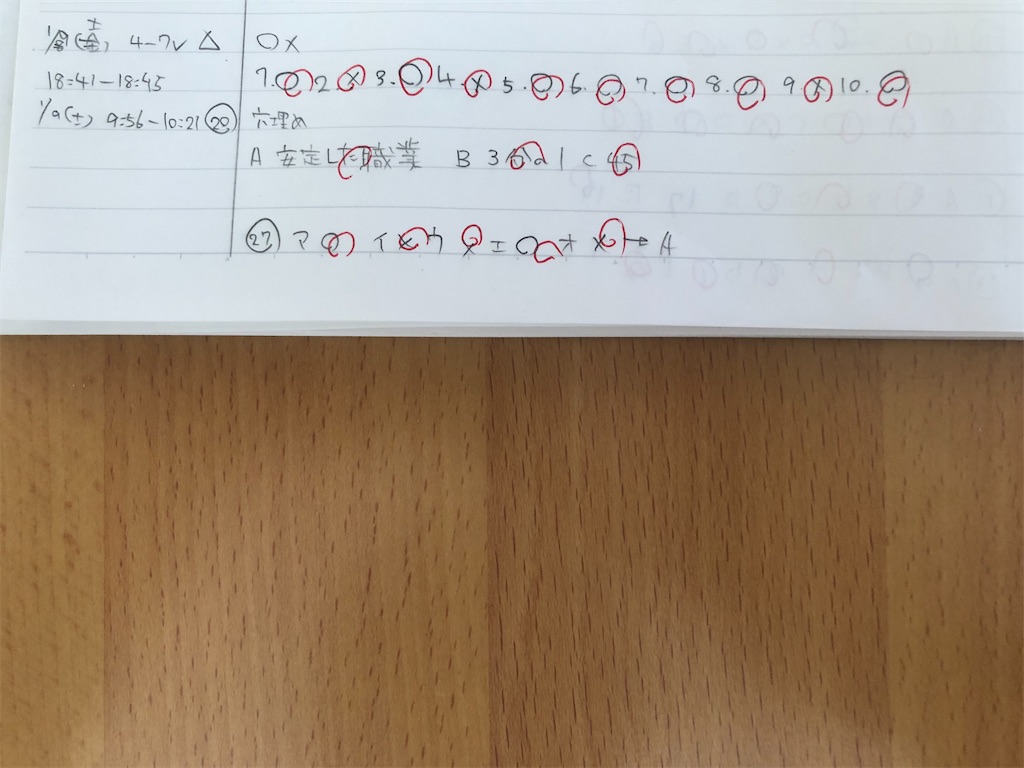 土
(金) 4-7V △
○×
18:41-18:45
1.○ 2.× 3.○ 4.× 5.○ 6.○ 7.○ 8.○ 9× 10.○
1/9(土) 9:56-10:21
穴埋め
A 安定した職業 B 3分の1 C 45
㉗ ア○ イ× ウ エ○ オ×→A